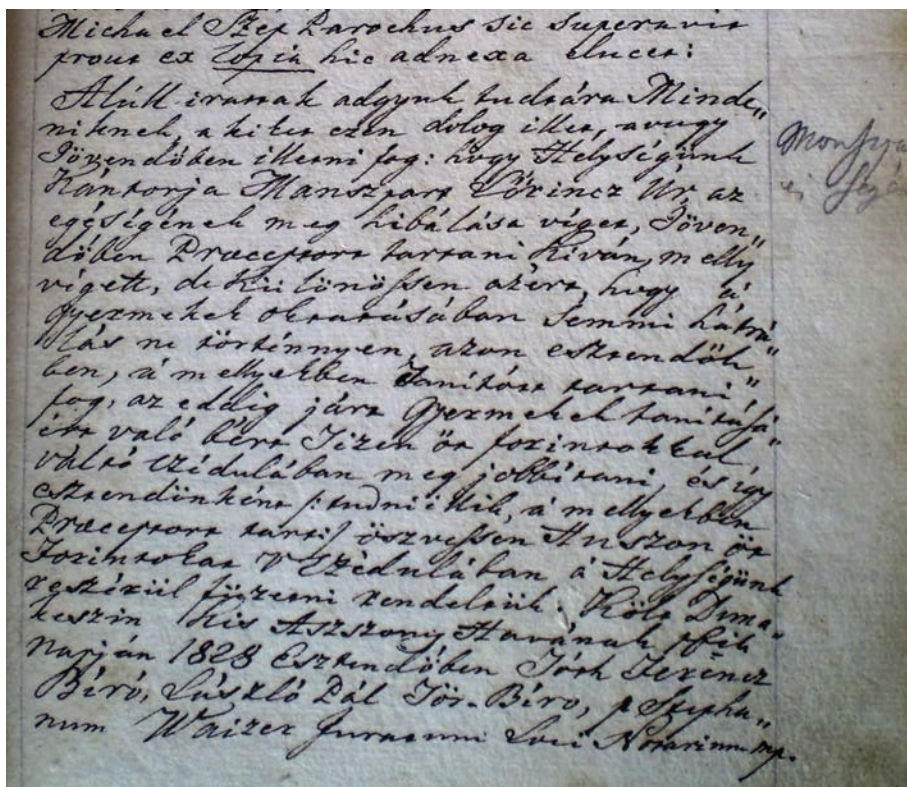 Michael Szep Parochus sic superavit
prout ex Copia hic adnexa elucet:
Alúll irattak adgyuk tudtára Minde„
niknek, a kiket ezen dolog illet, avagy
Jövendőben illetni fog: hogy Helységünk
Kántorja Manszpart Lőrincz Úr, az
egéségének meg hibálása véget, Jöven„
dőben Præceptort tartani Kiván, melly
végett, de Külónössen azért, hogy á
gyermekek oktatásában Semmi hátrá„
lás ne történnyen, azon esztendők„
ben, á mellyekben Tanítótt tartani
fog, az eddig járt Gyermekek tanitásá„
ért való bért Tizen öt forintokkal
váltó Czédulában meg jobbítani, és így
esztendőnként /: tudni illik, á mellyekben
Præceptort tart :/ öszvessen Huszon öt
Forintokat V Czédulában, á Helységünk
részérül fizetni rendeltük. Költ Duna„
keszin Kis Aszszony Havának
Napján 1828 Esztendőben Tóth Ferencz
Bíró, László Pál Tör. Bíro, p Stepha„
num Waizer Juratum Loci Notarium mp.